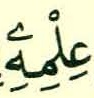 عِلْمِهِۦ